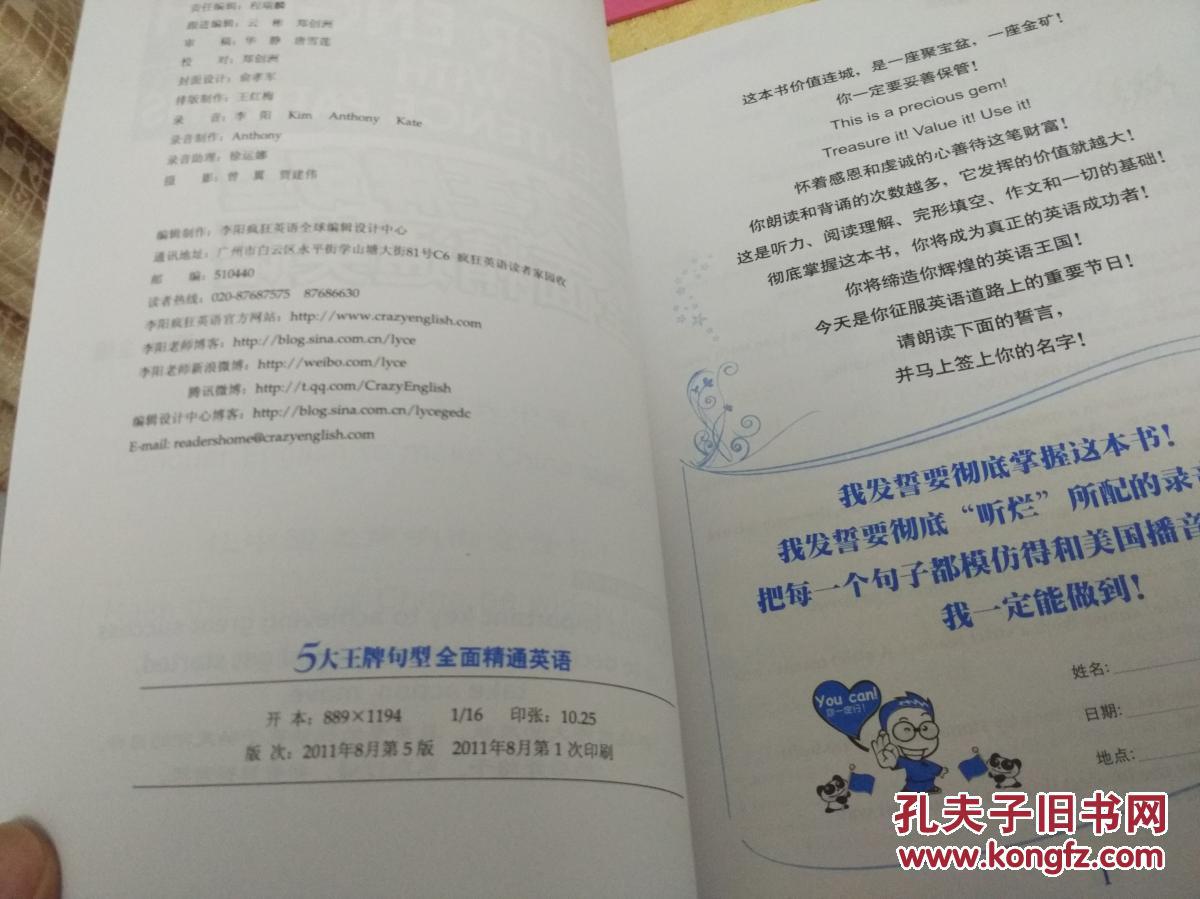 责任编辑：程瑞麟
跟进编辑：云 彬 郑创洲
审 稿：华 静 唐雪莲
校 对：郑创洲
封面设计：俞孝军
排版制作：王红梅
录 音：李 阳 Kim Anthony Kate
录音制作：Anthony
录音助理：徐运娜
摄 影：曾 翼 贾建伟
编辑制作：李阳疯狂英语全球编辑设计中心
通讯地址：广州市白云区永平街学山塘大街81号C6 疯狂英语读者家园收
邮 编：510440
读者热线：020-87687575 87686630
李阳疯狂英语官方网站：http://www.crazyenglish.com
李阳老师博客：http://blog.sina.com.cn/lyce
李阳老师新浪微博：http://weibo.com/lyce
腾讯微博：http://t.qq.com/CrazyEnglish
编辑设计中心博客：http://blog.sina.com.cn/lycegedc
E-mail: readershome@crazyenglish.com
5大王牌句型全面精通英语
开 本：889×1194 1/16 印张：10.25
版 次：2011年8月第5版 2011年8月第1次印刷
这本书价值连城，是一座聚宝盆，一座金矿！
你一定要妥善保管！
This is a precious gem!
Treasure it! Value it! Use it!
怀着感恩和虔诚的心善待这笔财富！
你朗读和背诵的次数越多，它发挥的价值就越大！
这是听力、阅读理解、完形填空、作文和一切的基础！
彻底掌握这本书，你将成为真正的英语成功者！
你将缔造你辉煌的英语王国！
今天是你征服英语道路上的重要节日！
请朗读下面的誓言，
并马上签上你的名字！
我发誓要彻底掌握这本书！
我发誓要彻底“听烂”所配的录音
把每一个句子都模仿得和美国播音
我一定能做到！
You can!
你一定行！
姓名：
日期：
地点：
1
孔夫子旧书网
www.kongfz.com